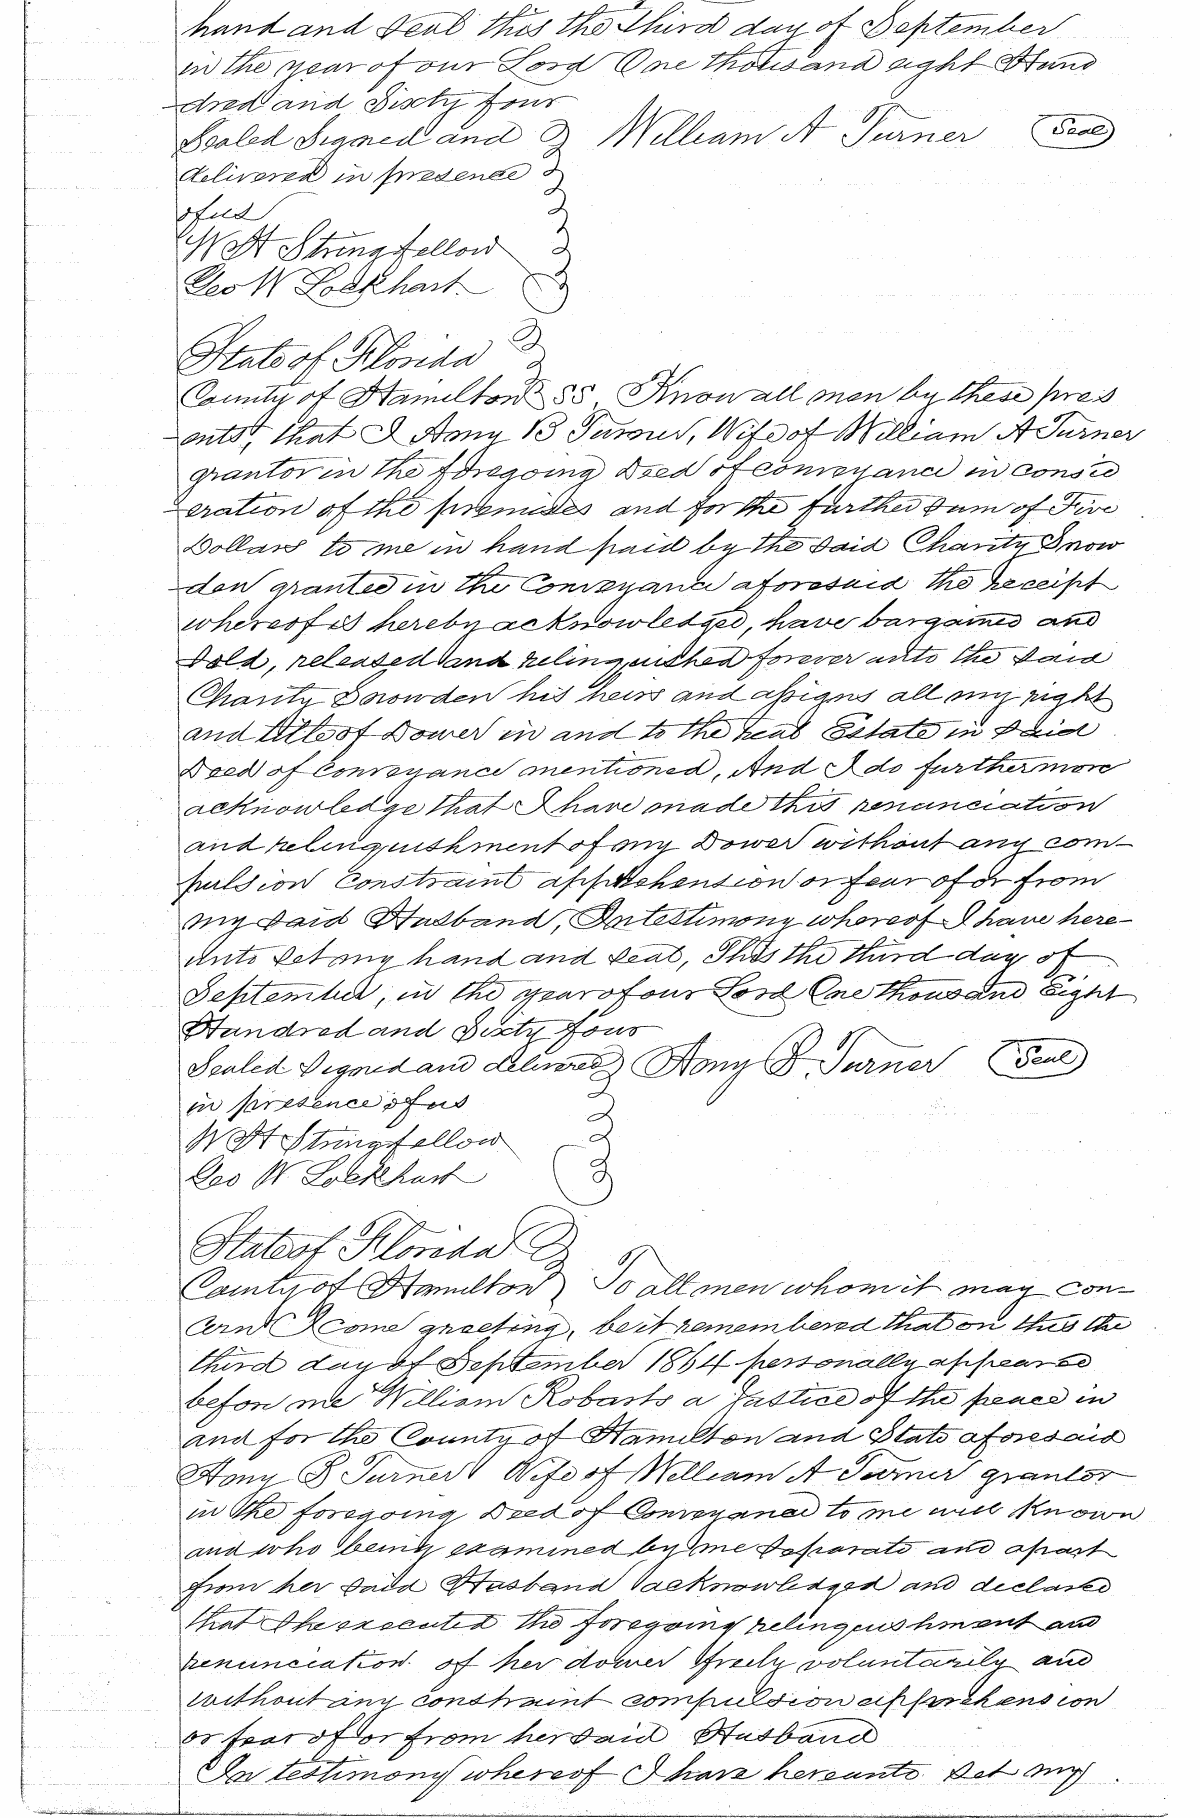 hand and Seal this the Third day of September
in the year of our Lord One thousand eight Hund
dred and Sixty four
Sealed Signed and William A Turner Seal
delivered in presence
of us
W H Stringfellow
Geo W Lockhart
State of Florida
County of Hamilton SS Know all men by these pres
ents, that I Amy B Turner, Wife of William A Turner
grantor in the foregoing Deed of conveyance in consid
eration of the premises and for the further Sum of Five
Dollars to me in hand paid by the Said Charity Snow
den grantee in the Conveyance aforesaid the receipt
whereof is hereby acknowledged, have bargained and
Sold, released and relinquished forever unto the Said
Charity Snowden his heirs and assigns all my right
and title of Dower in and to the real Estate in Said
Deed of Conveyance mentioned, And I do furthermore
acknowledge that I have made this renunciation
and relinquishment of my Dower without any com-
pulsion constraint apprehension or fear of or from
my Said Husband, In testimony whereof I have here-
unto Set my hand and Seal, This the third day of
September, in the year of our Lord One thousand Eight
Hundred and Sixty four
Sealed Signed and delivered Amy B. Turner Seal
in presence of us
W H Stringfellow
Geo W Lockhart
State of Florida
County of Hamilton To all men whom it may con-
cern I come greeting, be it remembered that on this the
third day of September 1864 personally appeared
before me William Robarts a Justice of the peace in
and for the County of Hamilton and State aforesaid
Amy B Turner Wife of William A Turner grantor
in the foregoing Deed of Conveyance to me well Known
and who being examined by me Separate and apart
from her Said Husband acknowledged and declared
that She executed the foregoing relinquishment and
renunciation of her dower freely voluntarily and
without any constraint compulsion apprehension
or fear of or from her Said Husband
In testimony whereof I have hereunto Set my